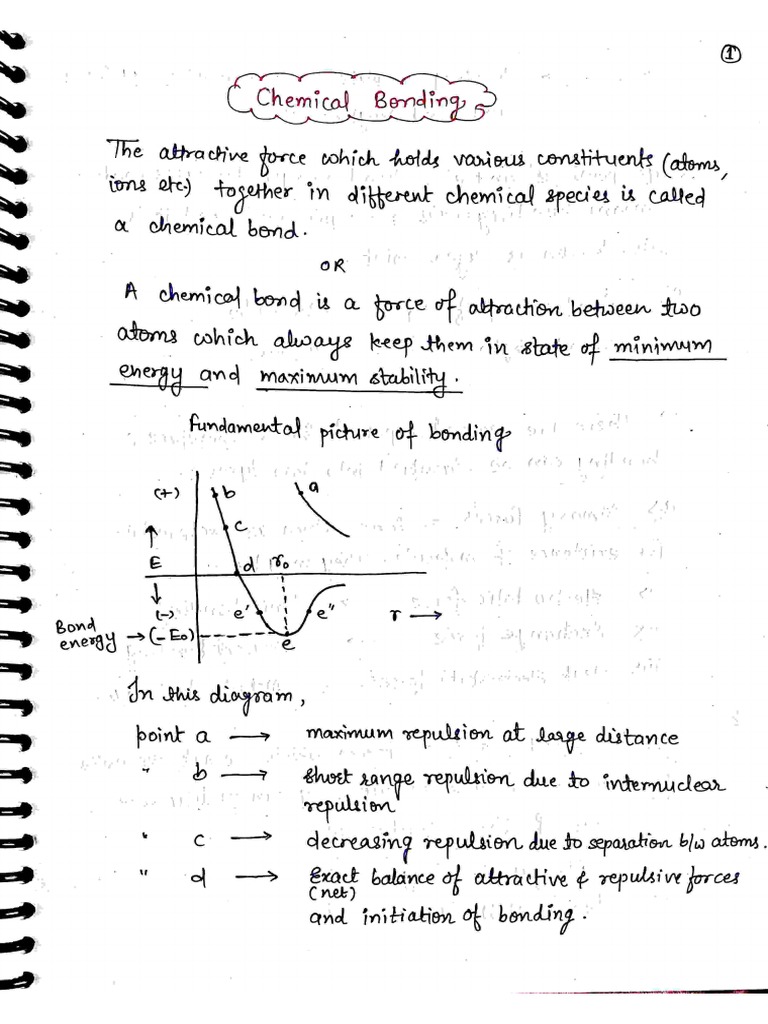 1
Chemical Bonding
The attractive force which holds various constituents (atoms,
ions etc.) together in different chemical species is called
a chemical bond.
OR
A chemical bond is a force of attraction between two
atoms which always keep them in state of minimum
energy and maximum stability.
Fundamental picture of bonding
(+) b a
c
E d r₀
(-) e' e" r →
Bond energy → (-E₀)
e
In this diagram,
point a → maximum repulsion at large distance
" b → short range repulsion due to internuclear
repulsion
" c → decreasing repulsion due to separation b/w atoms.
" d → Exact balance of attractive & repulsive forces
(net)
and initiation of bonding.